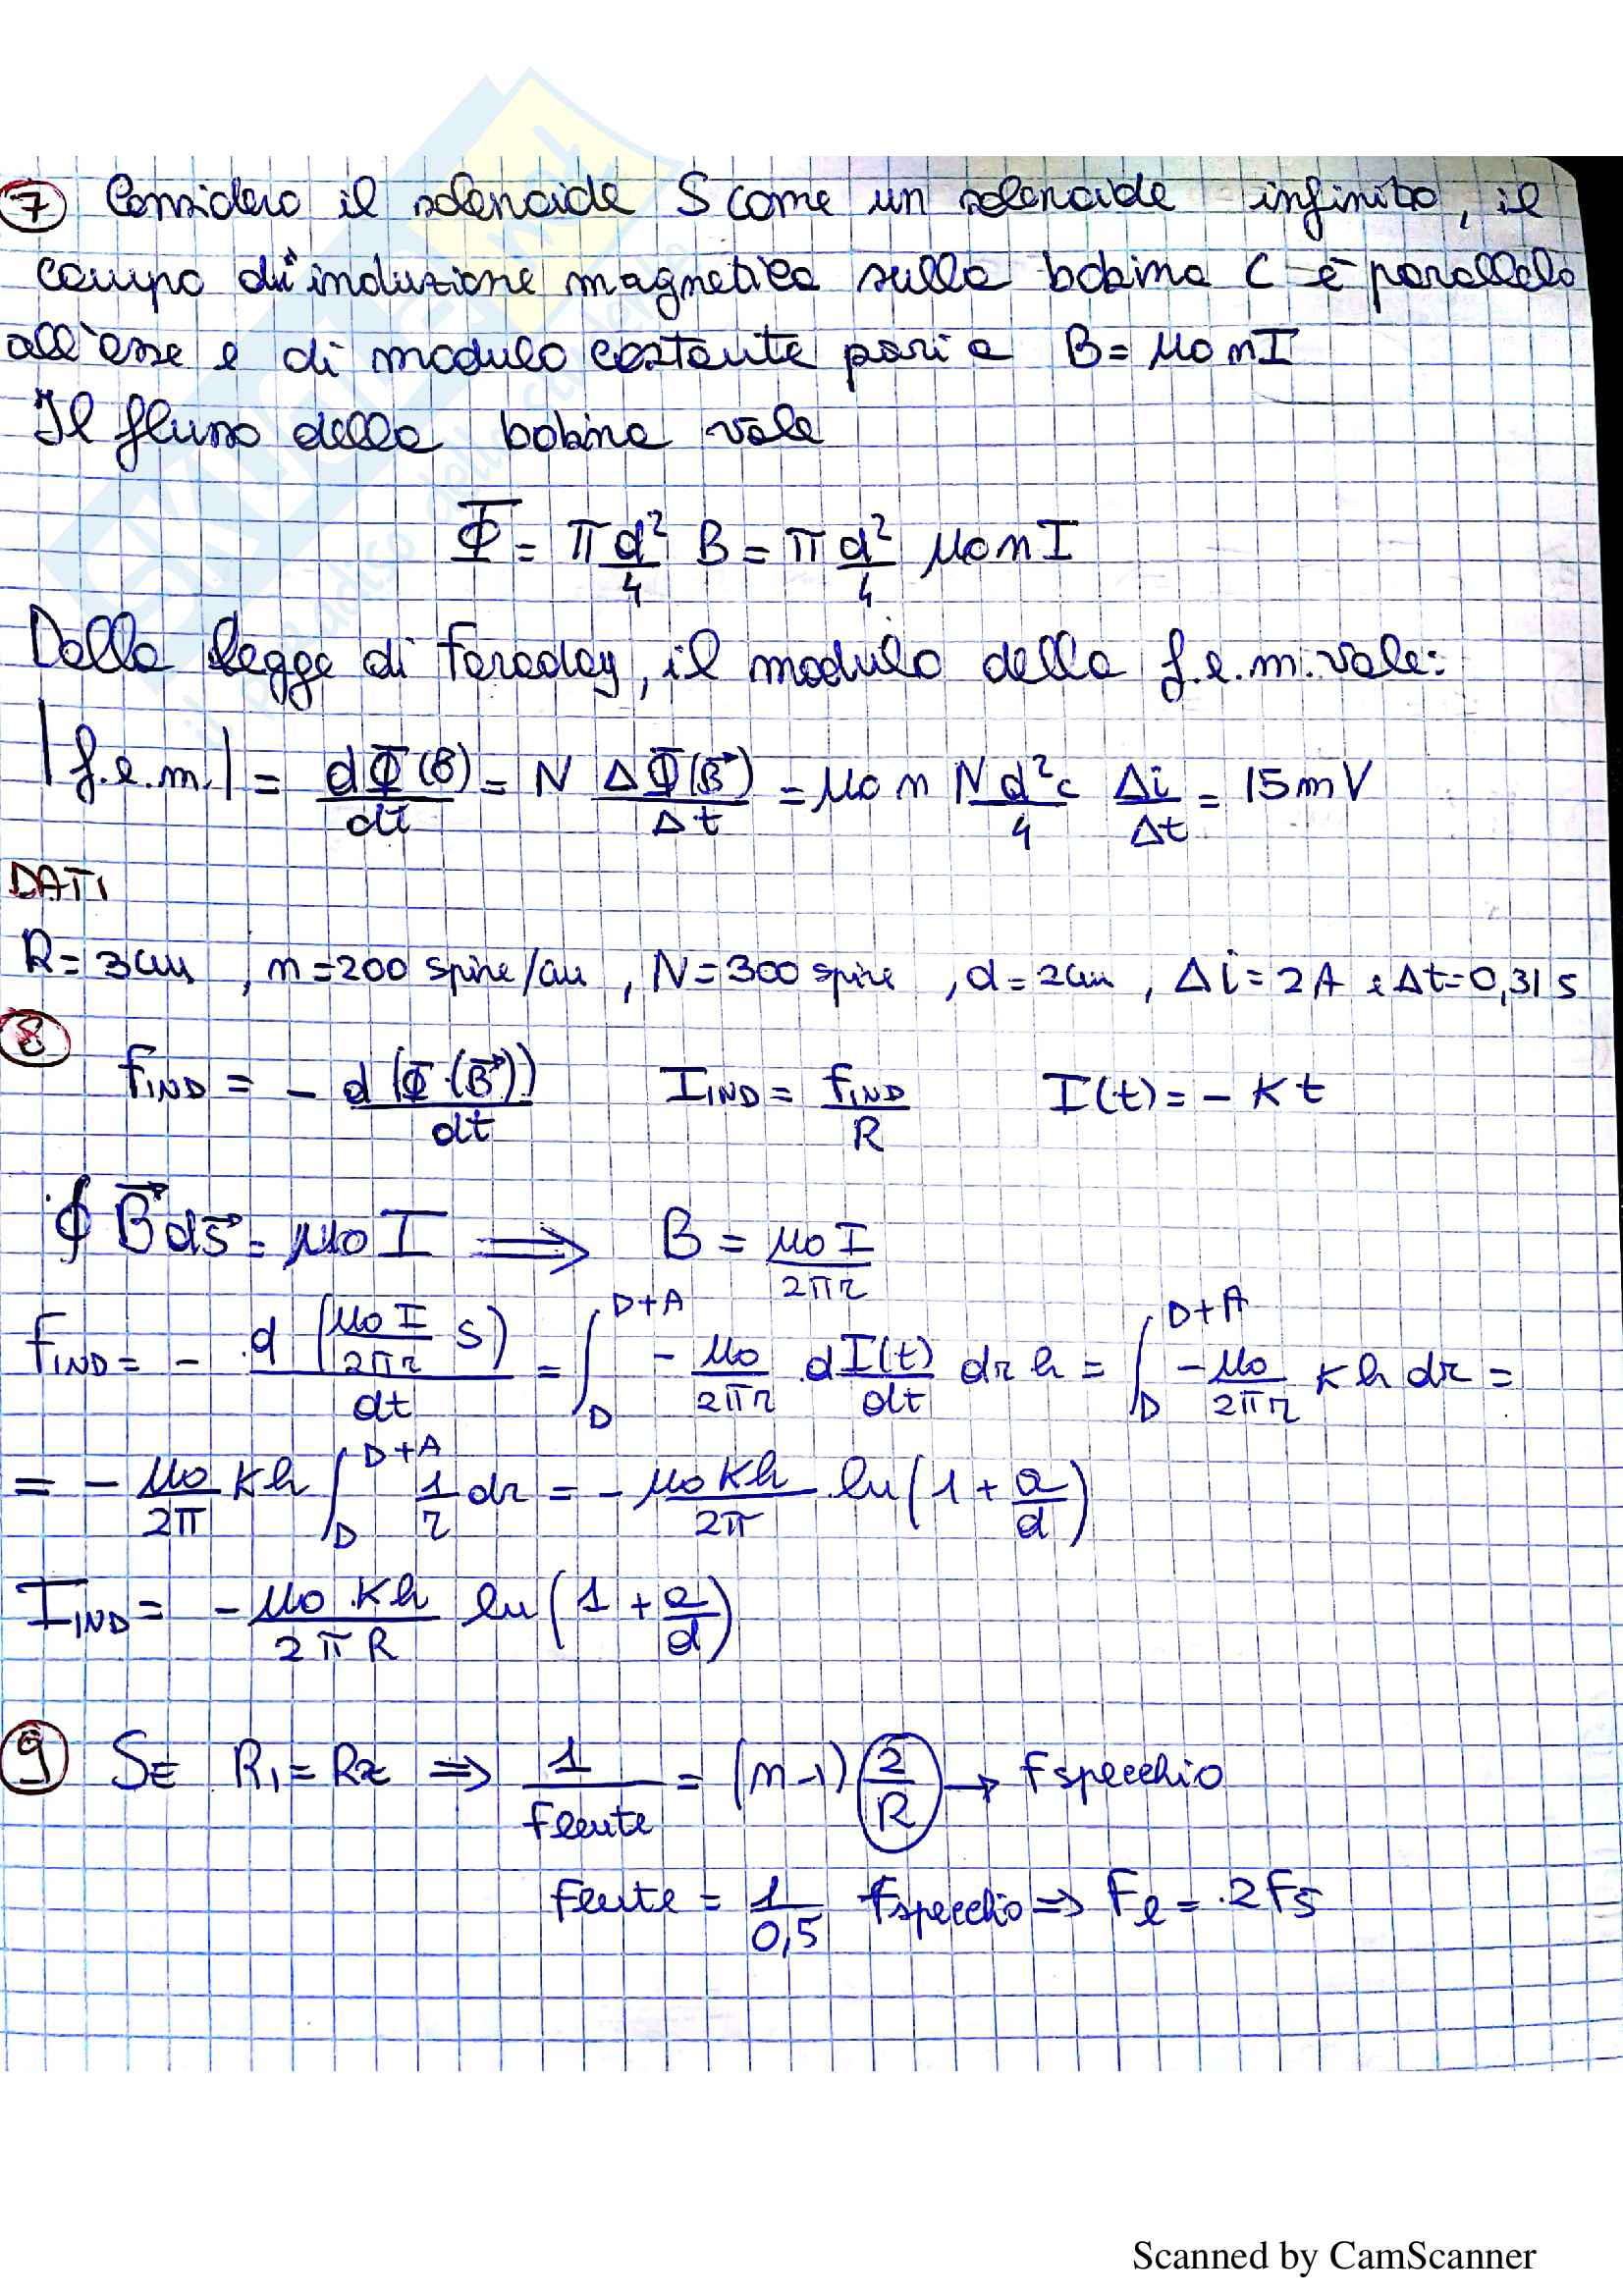 7 Considero il solenoide S come un solenoide infinito, il
campo di induzione magnetica sulla bobina C è parallelo
all'asse e di modulo costante pari a B = μ0 n I
Il flusso della bobina vale
Φ = π d²/4 B = π d²/4 μ0 n I
Dalla legge di Faraday, il modulo della f.e.m. vale:
|f.e.m.| = dΦ(B)/dt = N ΔΦ(B⃗)/Δt = μ0 n N d²c/4 Δi/Δt = 15 mV
DATI
R = 3cm, n = 200 spire/cm, N = 300 spire, d = 2cm, Δi = 2A e Δt = 0,31 s
8 fIND = - d(Φ(B⃗))/dt IIND = fIND/R I(t) = - Kt
∮ B⃗ ds⃗ = μ0 I ⟹ B = μ0 I/2πr
fIND = - d(μ0 I/2πr S)/dt = ∫_D^D+A - μ0/2πr dI(t)/dt dr h = ∫_D^D+A - μ0/2πr K h dr =
= - μ0/2π Kh ∫_D^D+A 1/r dr = - μ0 Kh/2π ln(1 + a/d)
IIND = - μ0 Kh/2πR ln(1 + a/d)
9 SE R1 = R2 ⇒ 1/Flente = (n-1) 2/R → Fspecchio
Flente = 1/0,5 Fspecchio ⇒ Fl = 2Fs
SKUOLA.net
il paradiso dello studente
Scanned by CamScanner